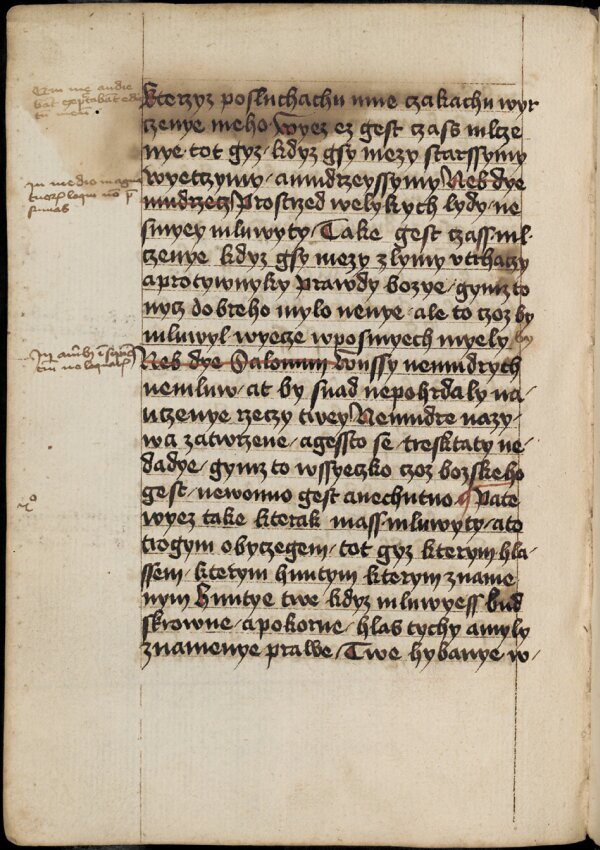 kterzyz posluchachu mne czakachu wyr
czenye meho. Wyez ez gest czass mlcze
nye. tot gyz. kdyz gsy mezy starssymy
wyetczymy. amudrzeyssymy Neb dye
mudrzecz Prostrzed welykych lydy. ne
smyey mluwyty. Take gest czass ml-
czenye kdyz gsy mezy zlymy vtrhaczy
aprotywnyky Prawdy bozye. gymz to
nycz dobreho mylo nenye. ale to czoz by
mluwyl wyecze wposmyech myely by
Neb dye Salomun Wussy nemudrych
nemluw. at by snad nepohrdaly na-
uczenye rzeczy twey Nemudre nazy-
wa zatwrzene. agessto se tresktaty ne
dadye. gymz to wssyeczko czoz bozskeho
gest. newonno gest anechutno. Pate
wyez take kterak mass mluwyty. ato
trogym obyczegem. tot gyz kterym hla-
ssem. kterym hnutym kterym zname
nym Hnutye twe kdyz mluwyess bud
skrowne. apokorne. hlas tychy amyly
znamenye prawe. Twe hybanye w-
In medio magna